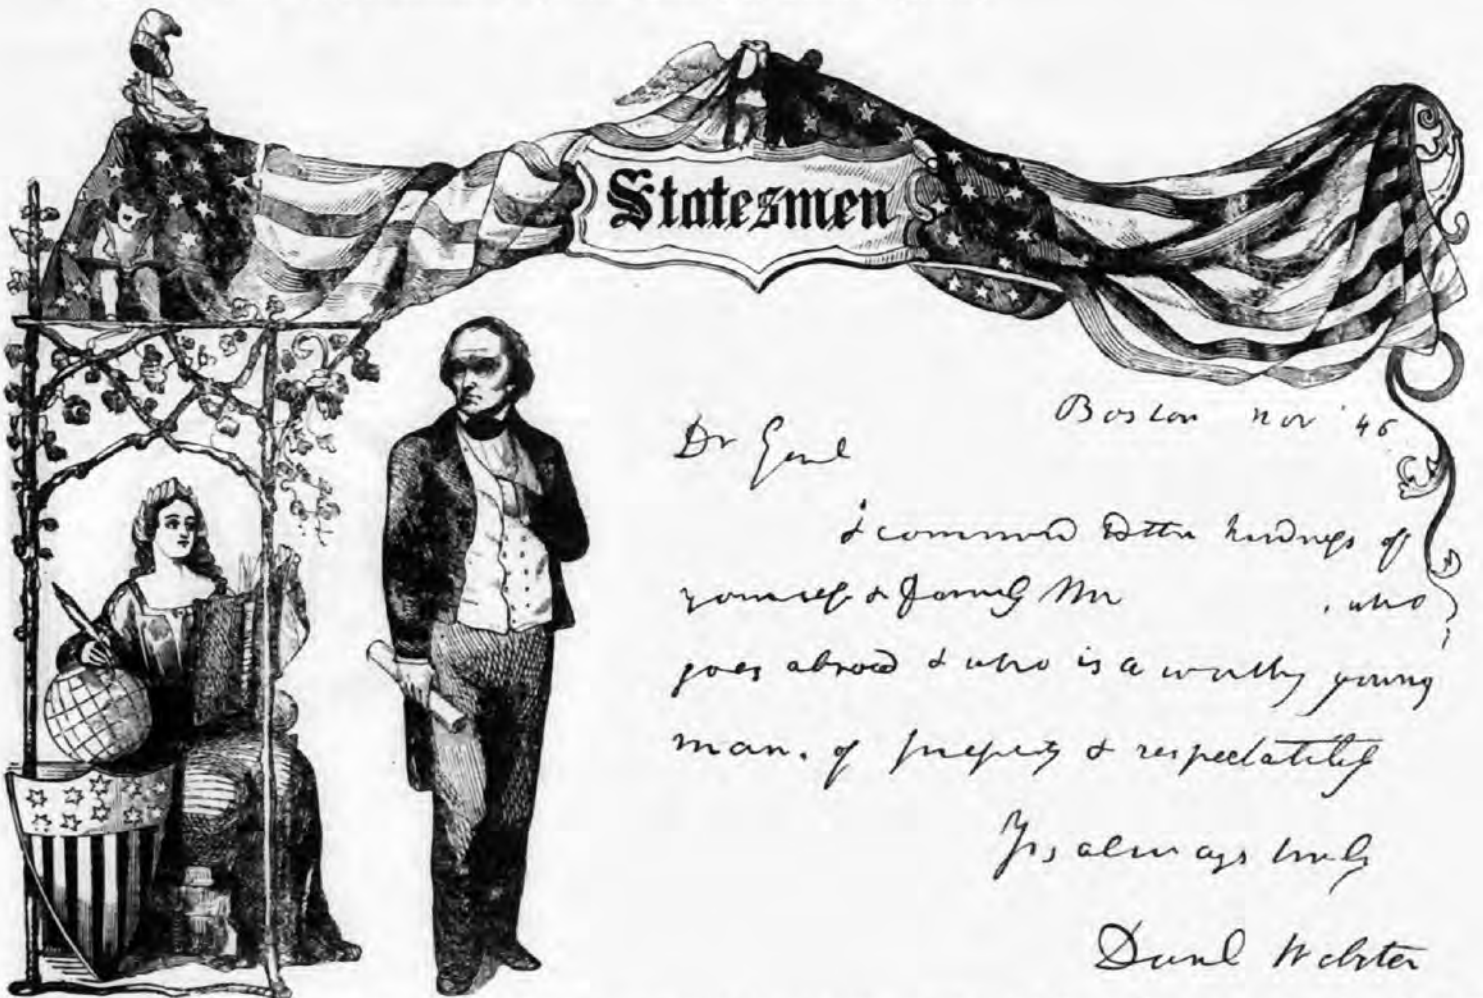 Statesmen
Boston Nov '46
Dr Genl
I commend to the kindness of
yourself & family Mr , who
goes abroad & who is a worthy young
man, of property & respectability
Yrs always truly
Danl Webster